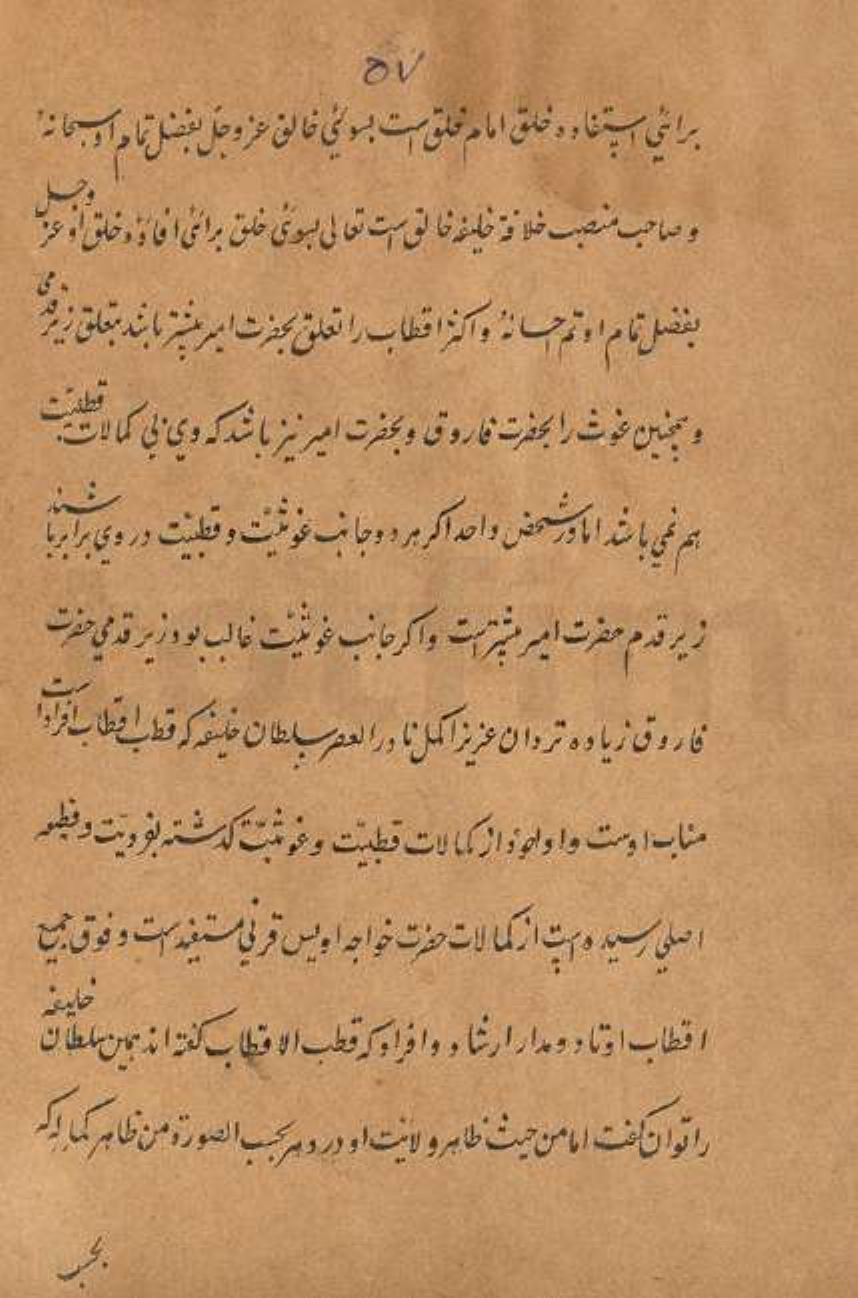 ۵۷
برائی استفاده خلق امام خلق است بسوئی خالق عز وجل بفضل تمام او سبحانهٗ
و صاحب منصب خلافة خلیفه خالق است تعالی بسوئی خلق برائی افادهٔ خلق او عز وجل
بفضل تمام او تم احسانهٗ و اکثر اقطاب را تعلق بحضرت امیر بیشتر باشد متعلق زیر قدمی
و همچنین غوث را بحضرت فاروق و بحضرت امیر نیز باشد که وی بی کمالات قطبیّت
هم نمی باشد اما در شخص واحد اکر هر دو جانب غوثیّت و قطبیّت در وی برابر باشند
زیر قدم حضرت امیر بیشتر است و اکر جانب غوثیّت غالب بود زیر قدمی حضرت
فاروق زیاده تر دان عزیز اکمل نادر العصر سلطان خلیفه که قطب اقطاب افراد است
مناب اوست و او از کمالات قطبیّت و غوثیّت کذشته بفردیّت و
اصلی رسیده است از کمالات حضرت خواجه اویس قرنی مستفید است و فوق جمیع
اقطاب اوتاد و مدار ارشاد و افراد که قطب الاقطاب کفته اند همین سلطان خلیفه
را توان کفت اما من حیث ظاهر ولایت او در دهر بحسب الصورة من ظاهر کماله که
بحسب